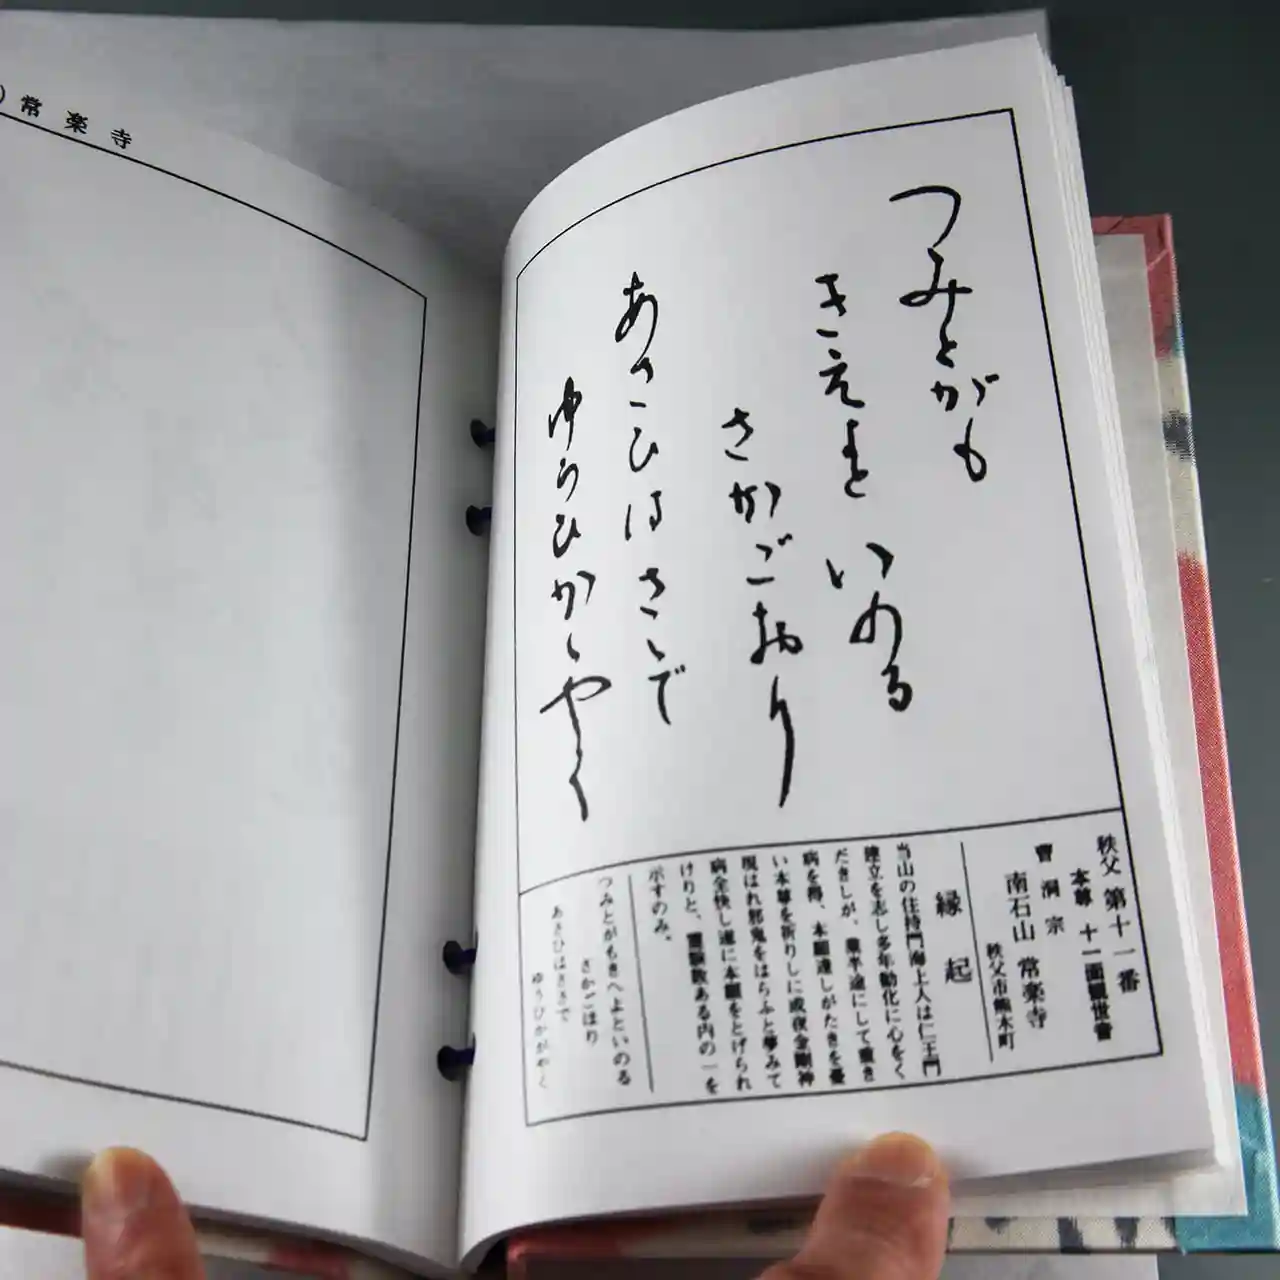 )常楽寺
つみとがも
きえよと いのる
さかごおり
あさひはさゝで
ゆうひかゝやく
秩父 第十一番
本尊 十一面観世音
曹洞宗
南石山 常楽寺
秩父市熊木町
縁起
当山の住持門海上人は仁王門
建立を志し多年勧化に心をく
だきしが、業半途にして重き
病を得、本願達しがたきを憂
い本尊を祈りしに或夜金剛神
現はれ邪鬼をはらふと夢みて
病全快し遂に本願をとげられ
けりと、霊験数ある内の一を
示すのみ。
つみとがもきへよといのる
さかごほり
あさひはささで
ゆうひかがやく